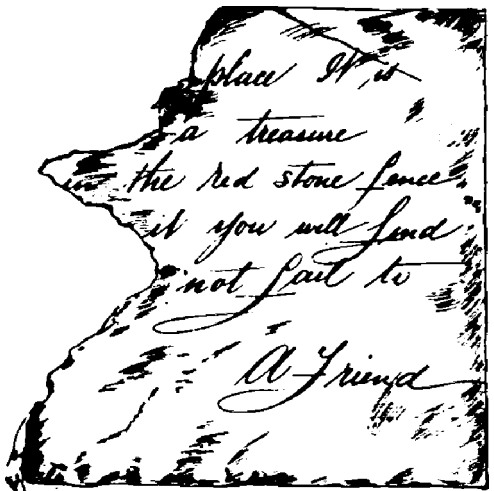 place It is
a treasure
in the red stone fence
it you will find
not fail to
A Friend